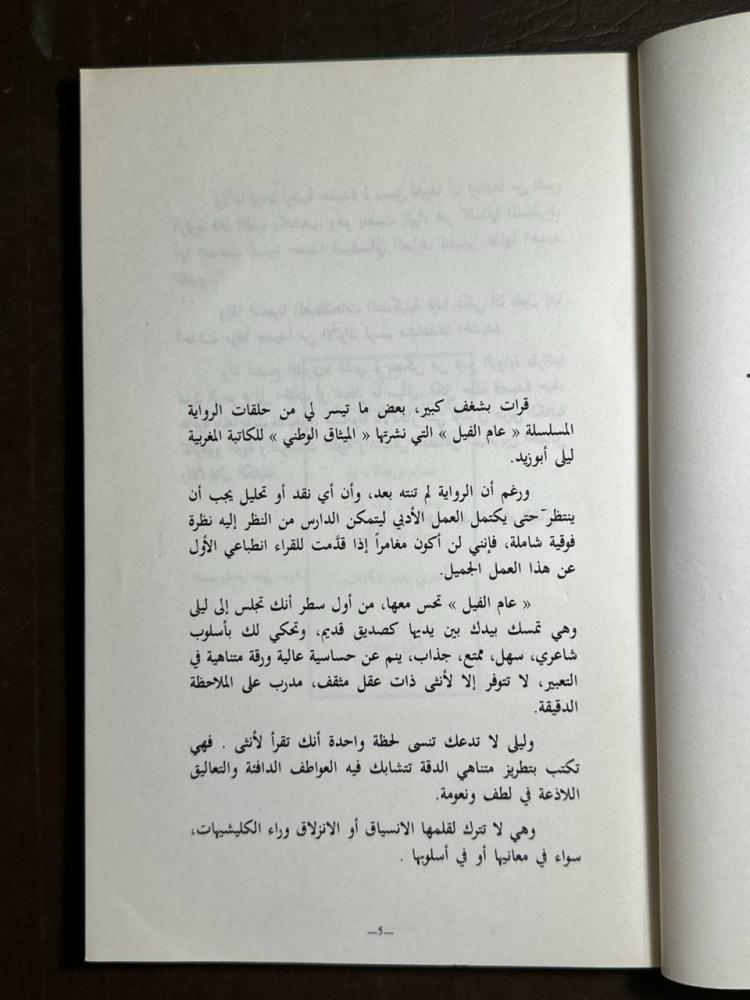 قرات بشغف كبير، بعض ما تيسر لي من حلقات الرواية
المسلسلة « عام الفيل » التي نشرتها « الميثاق الوطني » للكاتبة المغربية
ليلى أبوزيد.
ورغم أن الرواية لم تنته بعد، وأن أي نقد أو تحليل يجب أن
ينتظر حتى يكتمل العمل الأدبي ليتمكن الدارس من النظر إليه نظرة
فوقية شاملة، فإنني لن أكون مغامراً إذا قدَّمت للقراء انطباعي الأول
عن هذا العمل الجميل.
« عام الفيل » تحس معها، من أول سطر أنك تجلس إلى ليلى
وهي تمسك بيدك بين يديها كصديق قديم، وتحكي لك بأسلوب
شاعري، سهل، ممتع، جذاب، ينم عن حساسية عالية ورقة متناهية في
التعبير، لا تتوفر إلا لأنثى ذات عقل مثقف، مدرب على الملاحظة
الدقيقة.
وليلى لا تدعك تنسى لحظة واحدة أنك تقرأ لأنثى . فهي
تكتب بتطريز متناهي الدقة تتشابك فيه العواطف الدافئة والتعاليق
اللاذعة في لطف ونعومة.
وهي لا تترك لقلمها الانسياق أو الانزلاق وراء الكليشيهات،
سواء في معانيها أو في أسلوبها .
—5—